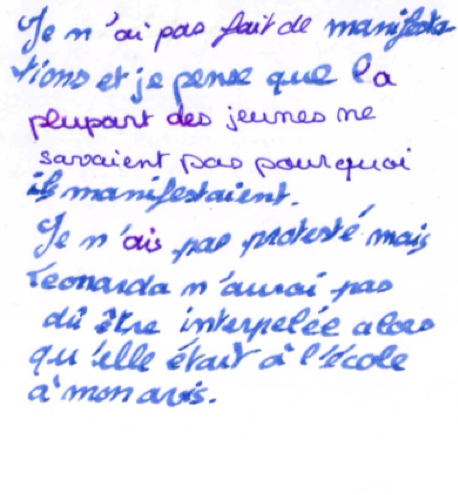 Je n'ai pas fait de manifesta
tions et je pense que la
plupart des jeunes ne
savaient pas pourquoi
ils manifestaient.
Je n'ais pas protesté mais
Léonarda n'aurai pas
dû être interpelée alors
qu'elle était à l'école
à mon avis.